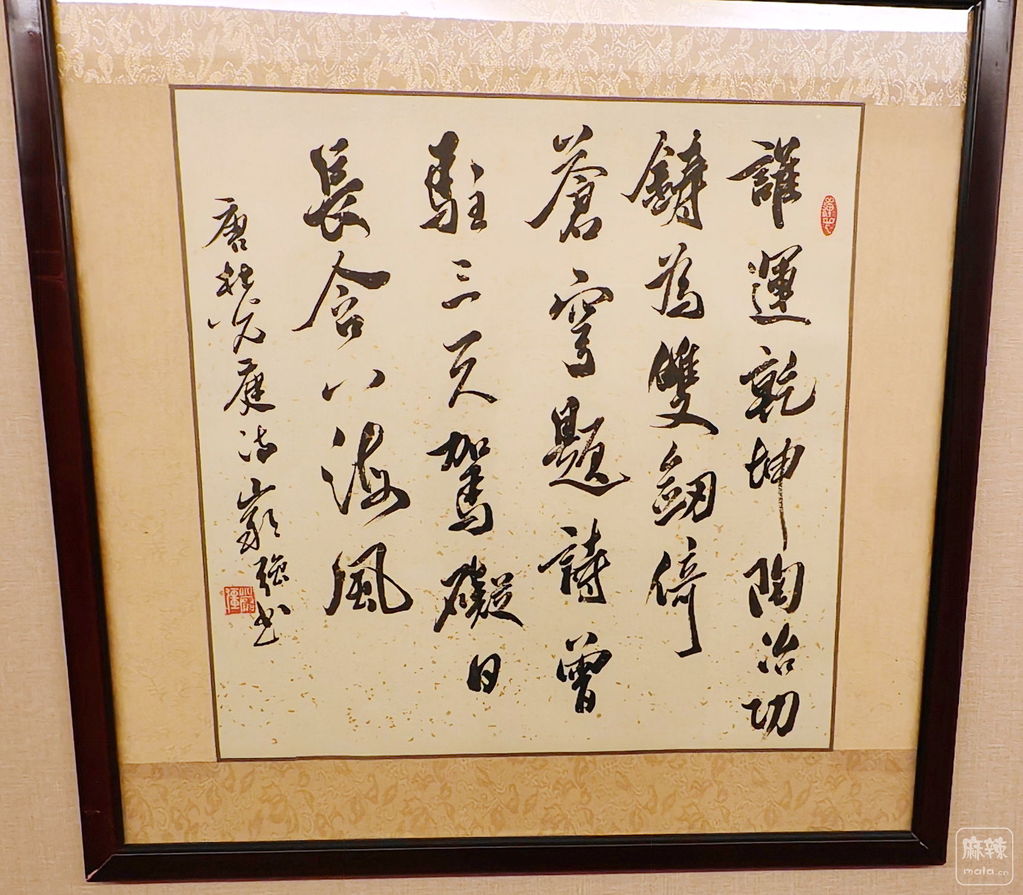 誰運乾坤陶冶功
鑄為雙劔倚
蒼穹題詩曾
駐三天駕礙日
長含八海風
唐杜光庭詩嚴強书
麻辣
mala.cn